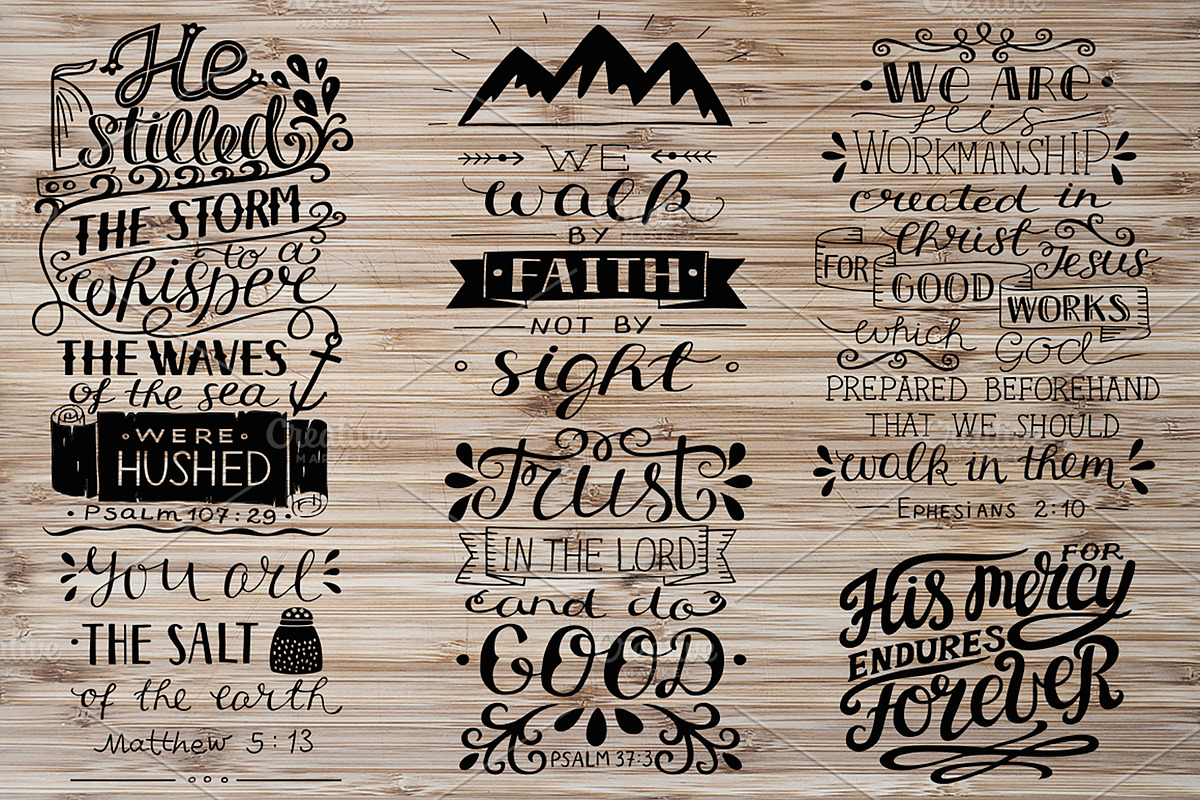 He
stilled
THE STORM
to a
whisper
THE WAVES
of the sea
·WERE·
HUSHED
·Psalm 107:29·
You are
·THE SALT
of the earth
Matthew 5:13
WE
walk
BY
·FAITH·
NOT BY
sight
Trust
IN THE LORD
and do
·GOOD·
PSALM 37:3
·WE ARE·
His
WORKMANSHIP
created in
Christ
Jesus
FOR
GOOD
WORKS
which
God
PREPARED BEFOREHAND
THAT WE SHOULD
walk in them
EPHESIANS 2:10
FOR
His mercy
ENDURES
Forever
Creative
MARKET